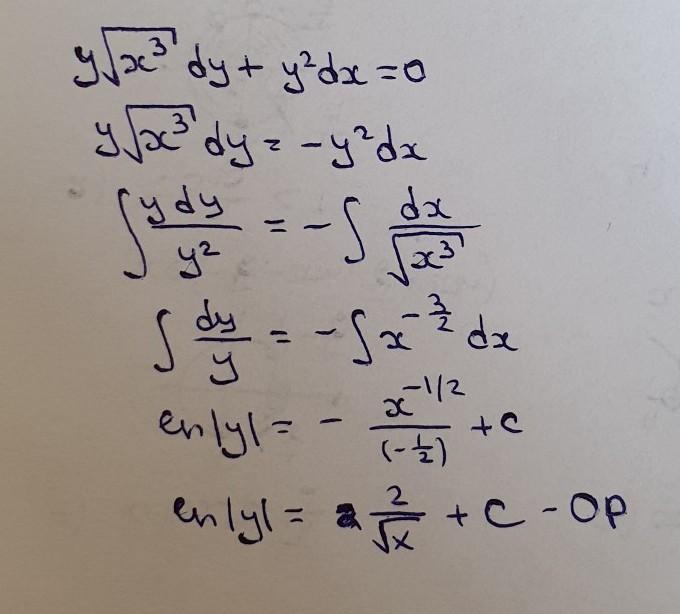 y√x³ dy + y²dx = 0
y√x³ dy = -y²dx
∫ y dy / y² = -∫ dx / √x³
∫ dy / y = -∫ x^(-3/2) dx
ln|y| = - x^(-1/2) / (-1/2) + c
ln|y| = 2 / √x + C - OP